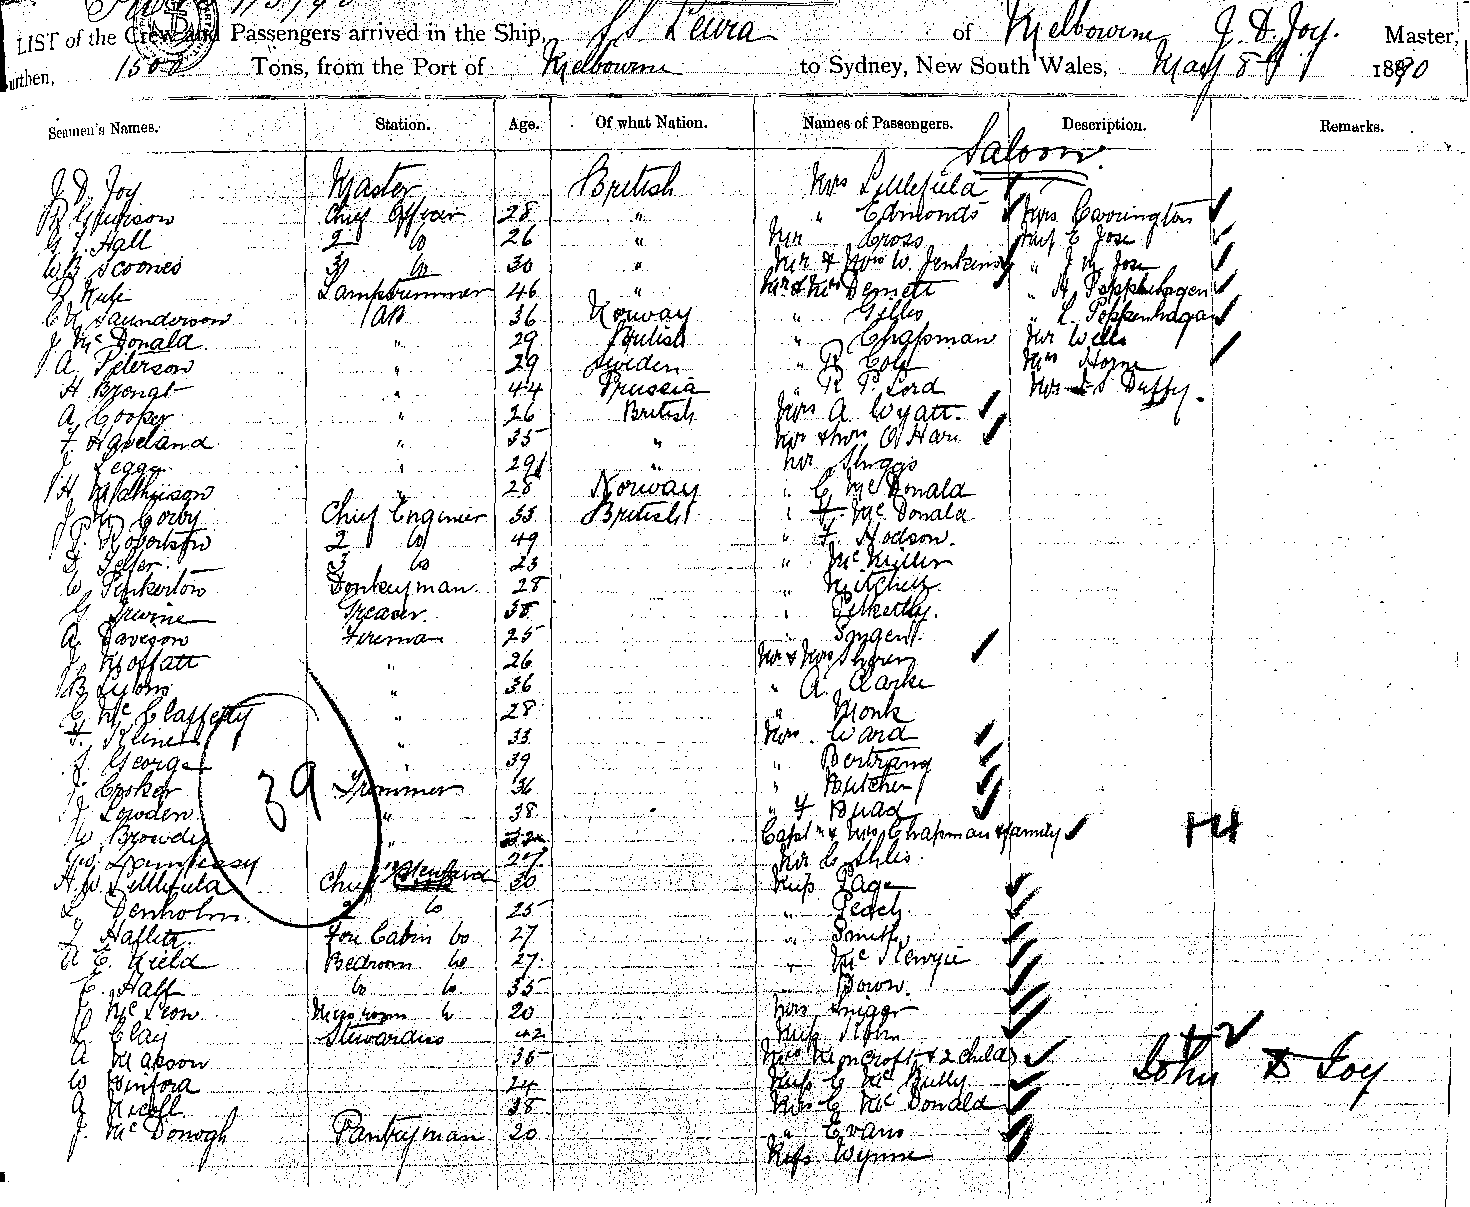 LIST of the Crew and Passengers arrived in the Ship, S S Leura of Melbourne J. D. Joy. Master,
urthen, 1500 Tons, from the Port of Melbourne to Sydney, New South Wales, May 8 1890
Seamen's Names. Station. Age. Of what Nation. Names of Passengers. Description. Remarks.
Saloon.
J D Joy Master British Mrs Littlefield
Chief Officer 28 " " Edmonds Mrs Carrington
G. L. Hall 2 Do 26 " Mr Cross Miss E Jose
W B Scoones 3 Do 30 " Mr & Mrs W. Jenkins " J M Jose
Lamptrimmer 46 " Mr & Mrs Bennett " H Poppenhagen
Saunderson AB 36 Norway " Gilles " L Poppenhagen
J McDonald " 29 British " Chapman Mr Wells
A Peterson " 29 Sweden " R Cole Mrs Horne
H Brengt " 44 Prussia " R P Lord Mrs Duffy.
A Cooper " 26 British Mrs A Wyatt.
F. Haveland " 35 " Mr & Mrs O Hara
J Legge " 29 " Mr
H Mathieson " 28 Norway " C McDonald
J Corby Chief Engineer 33 British " F. McDonald
Robertson 2 Do 49 " F Hodson.
3 Do 23 " McMillin
W Pinkerton Donkeyman 28 " Mitchell
G Irvine Greaser 38 "
A Daveson Fireman 25 "
J Moffatt " 26 Mr & Mrs
B Lyons " 36 " A. Clarke
C McClafferty " 28 " Monk
F. Kline " 33 Mrs Ward
J. George " 39 " Bertrand
J Cooker Trimmer 36 " Butcher
J Lowden " 38 " F Quad
W Browder " 32 Capt & Mrs Chapman & family 14
Dempsey 27 Mr C
39
H W Littlefield Chief Steward 30 Miss Page
L Denholm 2 Do 25 " Peach
Haflett Fore Cabin Do 27 " Smith
A E Field Bedroom Do 27 " McKenzie
E. Hall Do Do 35 " Bown.
J McLeon Messroom Do 20 Mrs
L Clay Stewardess 42 Miss
A Mapson 35 Mrs Moncroft & 2 childs + 2
W Binford 24 Miss C McBully John D Joy
A Nicoll 38 Mrs C McDonald
J. McDonogh Pantryman 20 " Evans
Miss Wynne